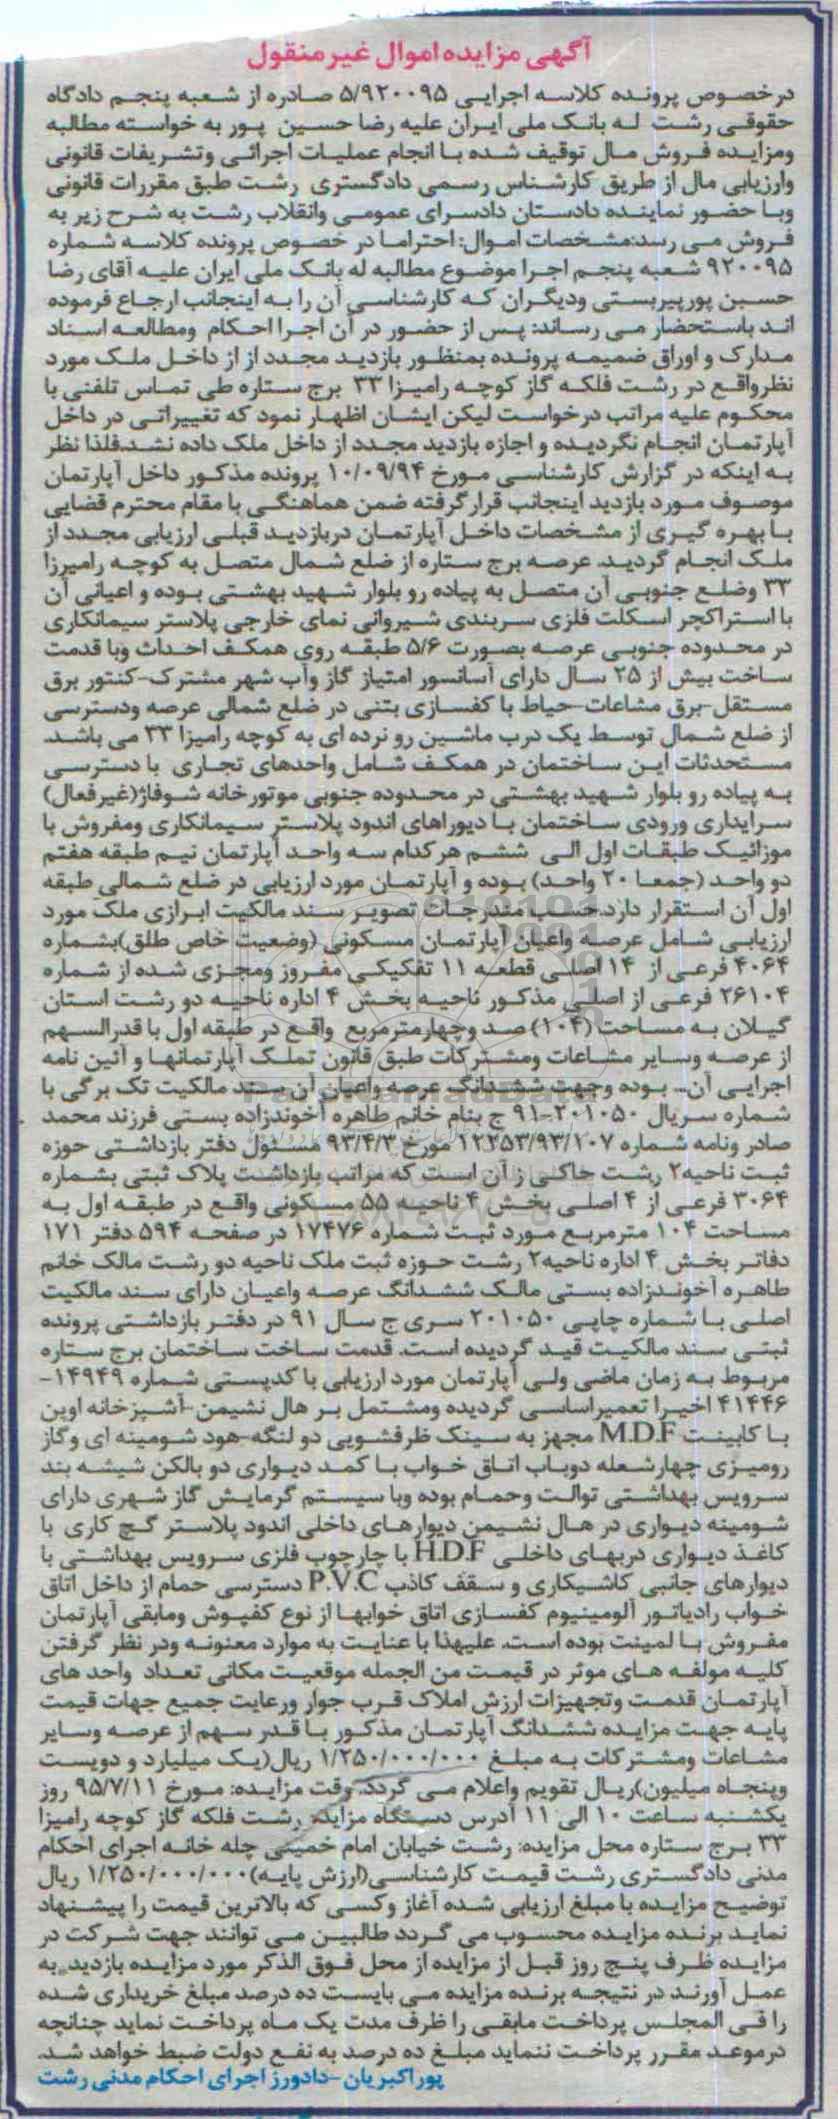 آگهی مزایده اموال غیرمنقول
درخصوص پرونده کلاسه اجرایی ۵/۹۲۰۰۹۵ صادره از شعبه پنجم دادگاه
حقوقی رشت له بانک ملی ایران علیه رضا حسین پور به خواسته مطالبه
ومزایده فروش مال توقیف شده با انجام عملیات اجرائی وتشریفات قانونی
وارزیابی مال از طریق کارشناس رسمی دادگستری رشت طبق مقررات قانونی
وبا حضور نماینده دادستان دادسرای عمومی وانقلاب رشت به شرح زیر به
فروش می رسد:مشخصات اموال: احتراما در خصوص پرونده کلاسه شماره
۹۲۰۰۹۵ شعبه پنجم اجرا موضوع مطالبه له بانک ملی ایران علیه آقای رضا
حسین پورپیربستی ودیگران که کارشناسی آن را به اینجانب ارجاع فرموده
اند باستحضار می رساند: پس از حضور در آن اجرا احکام ومطالعه اسناد
مدارک و اوراق ضمیمه پرونده بمنظور بازدید مجدد از از داخل ملک مورد
نظرواقع در رشت فلکه گاز کوچه رامیزا ۳۳ برج ستاره طی تماس تلفنی با
محکوم علیه مراتب درخواست لیکن ایشان اظهار نمود که تغییراتی در داخل
آپارتمان انجام نگردیده و اجازه بازدید مجدد از داخل ملک داده نشد.فلذا نظر
به اینکه در گزارش کارشناسی مورخ ۱۰/۰۹/۹۴ پرونده مذکور داخل آپارتمان
موصوف مورد بازدید اینجانب قرار گرفته ضمن هماهنگی با مقام محترم قضایی
با بهره گیری از مشخصات داخل آپارتمان دربازدید قبلی ارزیابی مجدد از
ملک انجام گردید. عرصه برج ستاره از ضلع شمال متصل به کوچه رامیرزا
۳۳ وضلع جنوبی آن متصل به پیاده رو بلوار شهید بهشتی بوده و اعیانی آن
با استراکچر اسکلت فلزی سربندی شیروانی نمای خارجی پلاستر سیمانکاری
در محدوده جنوبی عرصه بصورت ۵/۶ طبقه روی همکف احداث وبا قدمت
ساخت بیش از ۲۵ سال دارای آسانسور امتیاز گاز وآب شهر مشترک-کنتور برق
مستقل-برق مشاعات-حیاط با کفسازی بتنی در ضلع شمالی عرصه ودسترسی
از ضلع شمال توسط یک درب ماشین رو نرده ای به کوچه رامیزا ۳۳ می باشد.
مستحدثات این ساختمان در همکف شامل واحدهای تجاری با دسترسی
به پیاده رو بلوار شهید بهشتی در محدوده جنوبی موتورخانه شوفاژ(غیرفعال)
سرایداری ورودی ساختمان با دیوراهای اندود پلاستر سیمانکاری ومفروش با
موزائیک طبقات اول الی ششم هر کدام سه واحد آپارتمان نیم طبقه هفتم
دو واحد (جمعا ۲۰ واحد) بوده و آپارتمان مورد ارزیابی در ضلع شمالی طبقه
اول آن استقرار دارد.حسب مندرجات تصویر سند مالکیت ابرازی ملک مورد
ارزیابی شامل عرصه واعیان آپارتمان مسکونی (وضعیت خاص طلق)بشماره
۴۰۶۴ فرعی از ۱۴ اصلی قطعه ۱۱ تفکیکی مفروز ومجزی شده از شماره
۲۶۱۰۴ فرعی از اصلی مذکور ناحیه بخش ۴ اداره ناحیه دو رشت استان
گیلان به مساحت (۱۰۴) صد وچهارمترمربع واقع در طبقه اول با قدرالسهم
از عرصه وسایر مشاعات ومشترکات طبق قانون تملک آپارتمانها و آئین نامه
اجرایی آن... بوده وجهت ششدانگ عرصه واعیان آن سند مالکیت تک برگی با
شماره سریال ۲۰۱۰۵۰-۹۱ ج بنام خانم طاهره آخوندزاده بستی فرزند محمد
صادر ونامه شماره ۱۲۲۵۳/۹۳/۱۰۷ مورخ ۹۳/۴/۳ مسئول دفتر بازداشتی حوزه
ثبت ناحیه۲ رشت حاکی ز آن است که مراتب بازداشت پلاک ثبتی بشماره
۳۰۶۴ فرعی از ۴ اصلی بخش ۴ ناحیه ۵۵ مسکونی واقع در طبقه اول به
مساحت ۱۰۴ مترمربع مورد ثبت شماره ۱۷۴۷۶ در صفحه ۵۹۴ دفتر ۱۷۱
دفاتر بخش ۴ اداره ناحیه۲ رشت حوزه ثبت ملک ناحیه دو رشت مالک خانم
طاهره آخوندزاده بستی مالک ششدانگ عرصه واعیان دارای سند مالکیت
اصلی با شماره چاپی ۲۰۱۰۵۰ سری ج سال ۹۱ در دفتر بازداشتی پرونده
ثبتی سند مالکیت قید گردیده است. قدمت ساخت ساختمان برج ستاره
مربوط به زمان ماضی ولی آپارتمان مورد ارزیابی با کدپستی شماره ۱۴۹۴۹-
۴۱۴۴۶ اخیرا تعمیراساسی گردیده ومشتمل بر هال نشیمن-آشپزخانه اوپن
با کابینت M.D.F مجهز به سینک ظرفشویی دو لنگه-هود شومینه ای وگاز
رومیزی چهارشعله دوباب اتاق خواب با کمد دیواری دو بالکن شیشه بند
سرویس بهداشتی توالت وحمام بوده وبا سیستم گرمایش گاز شهری دارای
شومینه دیواری در هال نشیمن دیوارهای داخلی اندود پلاستر گچ کاری با
کاغذ دیواری دربهای داخلی H.D.F با چارچوب فلزی سرویس بهداشتی با
دیوارهای جانبی کاشیکاری و سقف کاذب P.V.C دسترسی حمام از داخل اتاق
خواب رادیاتور آلومینیوم کفسازی اتاق خوابها از نوع کفپوش ومابقی آپارتمان
مفروش با لمینت بوده است. علیهذا با عنایت به موارد معنونه ودر نظر گرفتن
کلیه مولفه های موثر در قیمت من الجمله موقعیت مکانی تعداد واحد های
آپارتمان قدمت وتجهیزات ارزش املاک قرب جوار ورعایت جمیع جهات قیمت
پایه جهت مزایده ششدانگ آپارتمان مذکور با قدر سهم از عرصه وسایر
مشاعات ومشترکات به مبلغ ۱/۲۵۰/۰۰۰/۰۰۰ ریال(یک میلیارد و دویست
وپنجاه میلیون)ریال تقویم واعلام می گردد. وقت مزایده: مورخ ۹۵/۷/۱۱ روز
یکشنبه ساعت ۱۰ الی ۱۱ آدرس دستگاه مزایده رشت فلکه گاز کوچه رامیزا
۳۳ برج ستاره محل مزایده: رشت خیابان امام خمینی چله خانه اجرای احکام
مدنی دادگستری رشت قیمت کارشناسی(ارزش پایه)۱/۲۵۰/۰۰۰/۰۰۰ ریال
توضیح مزایده با مبلغ ارزیابی شده آغاز وکسی که بالاترین قیمت را پیشنهاد
نماید برنده مزایده محسوب می گردد طالبین می توانند جهت شرکت در
مزایده ظرف پنج روز قبل از مزایده از محل فوق الذکر مورد مزایده بازدید به
عمل آورند در نتیجه برنده مزایده می بایست ده درصد مبلغ خریداری شده
را فی المجلس پرداخت مابقی را ظرف مدت یک ماه پرداخت نماید چنانچه
درموعد مقرر پرداخت ننماید مبلغ ده درصد به نفع دولت ضبط خواهد شد.
پوراکبریان -دادورز اجرای احکام مدنی رشت